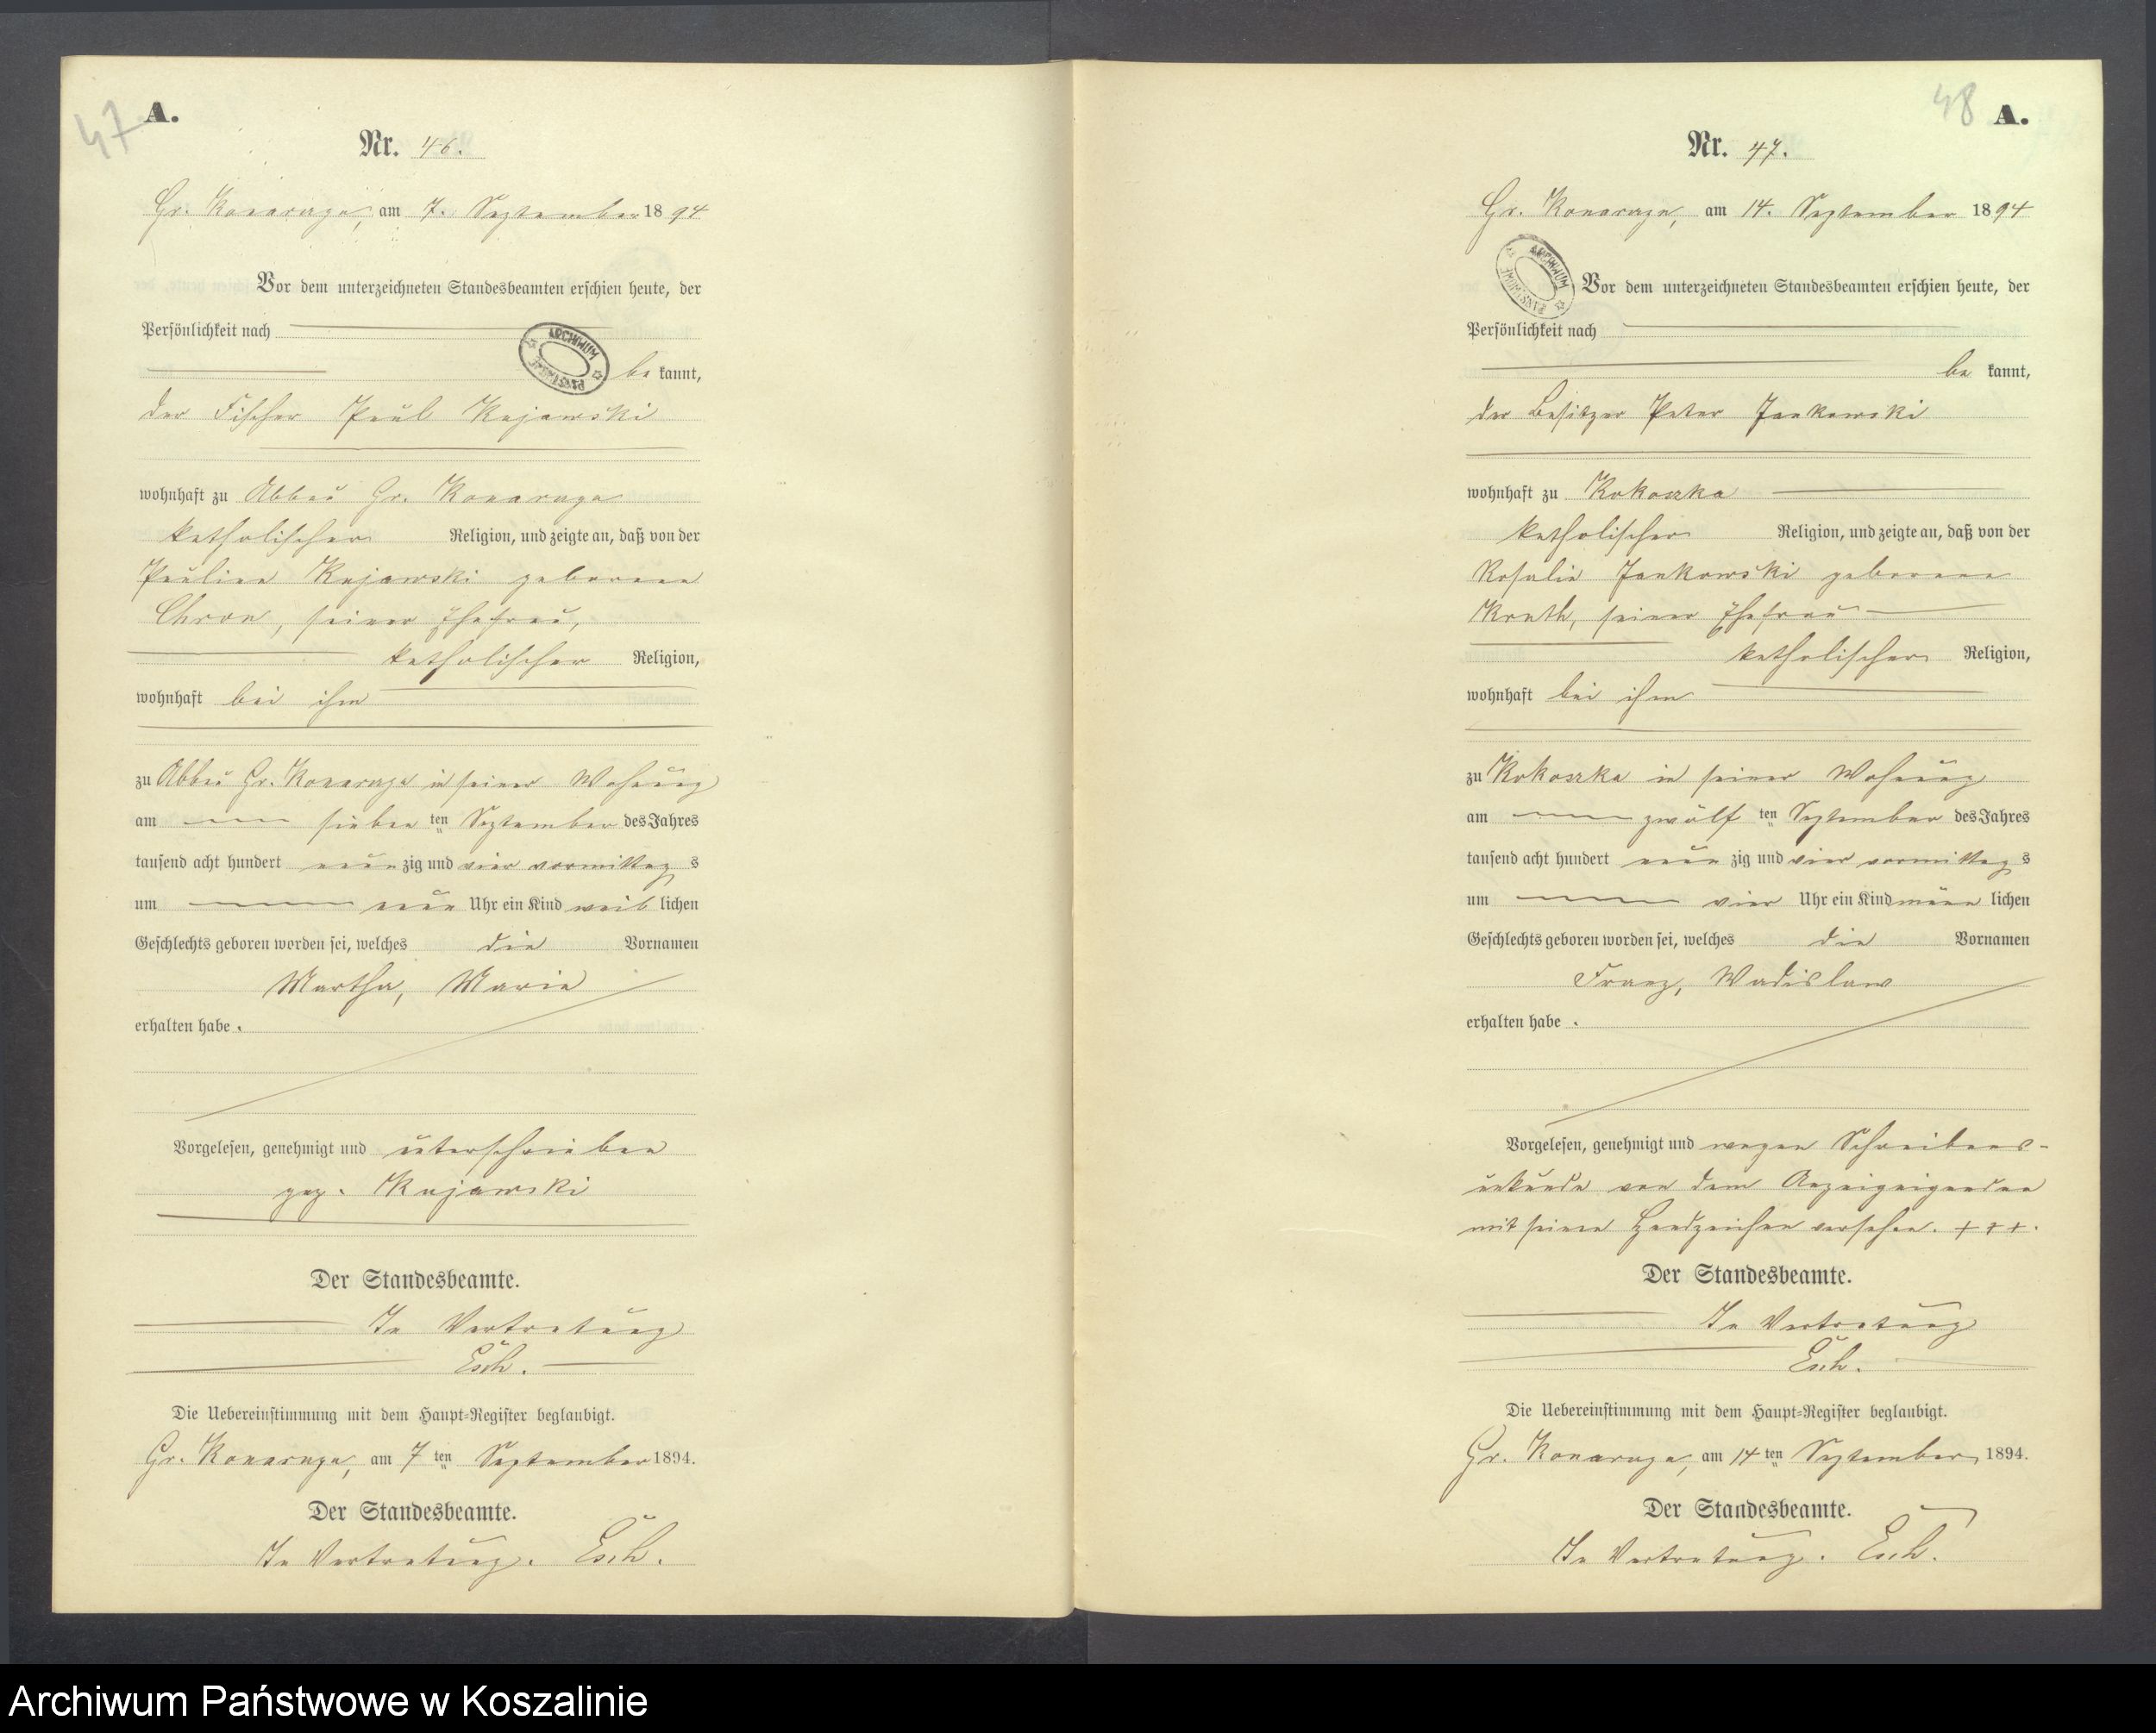 47
A.
Nr. 46.
Gr. Konarczyn, am 7. September 1894
Vor dem unterzeichneten Standesbeamten erschien heute, der
Persönlichkeit nach
be kannt,
der Fischer Paul Kujawski
wohnhaft zu Abbau Gr. Konarczyn
katholischer Religion, und zeigte an, daß von der
Pauline Kujawski geborene
Chron, seiner Ehefrau,
katholischer Religion,
wohnhaft bei ihm
zu Abbau Gr. Konarczyn in seiner Wohnung
am sieben ten September des Jahres
tausend acht hundert neun zig und vier vormittag s
um neun Uhr ein Kind weib lichen
Geschlechts geboren worden sei, welches die Vornamen
Martha, Marie
erhalten habe.
Vorgelesen, genehmigt und unterschrieben
gez. Kujawski
Der Standesbeamte.
In Vertretung
Esch.
Die Uebereinstimmung mit dem Haupt-Register beglaubigt.
Gr. Konarczyn, am 7 ten September 1894.
Der Standesbeamte.
In Vertretung. Esch.
ARCHIWUM PAŃSTWOWE
48
A.
Nr. 47.
Gr. Konarczyn, am 14. September 1894
Vor dem unterzeichneten Standesbeamten erschien heute, der
Persönlichkeit nach
be kannt,
der Besitzer Peter Jankowski
wohnhaft zu Kokoszka
katholischer Religion, und zeigte an, daß von der
Rosalie Jankowski geborene
seiner Ehefrau
katholischer Religion,
wohnhaft bei ihm
zu Kokoszka in seiner Wohnung
am zwölf ten September des Jahres
tausend acht hundert neun zig und vier vormittag s
um vier Uhr ein Kind männ lichen
Geschlechts geboren worden sei, welches die Vornamen
Franz, Wadislaw
erhalten habe.
Vorgelesen, genehmigt und wegen Schreibens-
unkunde von dem
mit seinen Handzeichen versehen. + + +.
Der Standesbeamte.
In Vertretung
Esch.
Die Uebereinstimmung mit dem Haupt-Register beglaubigt.
Gr. Konarczyn, am 14 ten September 1894.
Der Standesbeamte.
In Vertretung. Esch.
ARCHIWUM PAŃSTWOWE
Archiwum Państwowe w Koszalinie